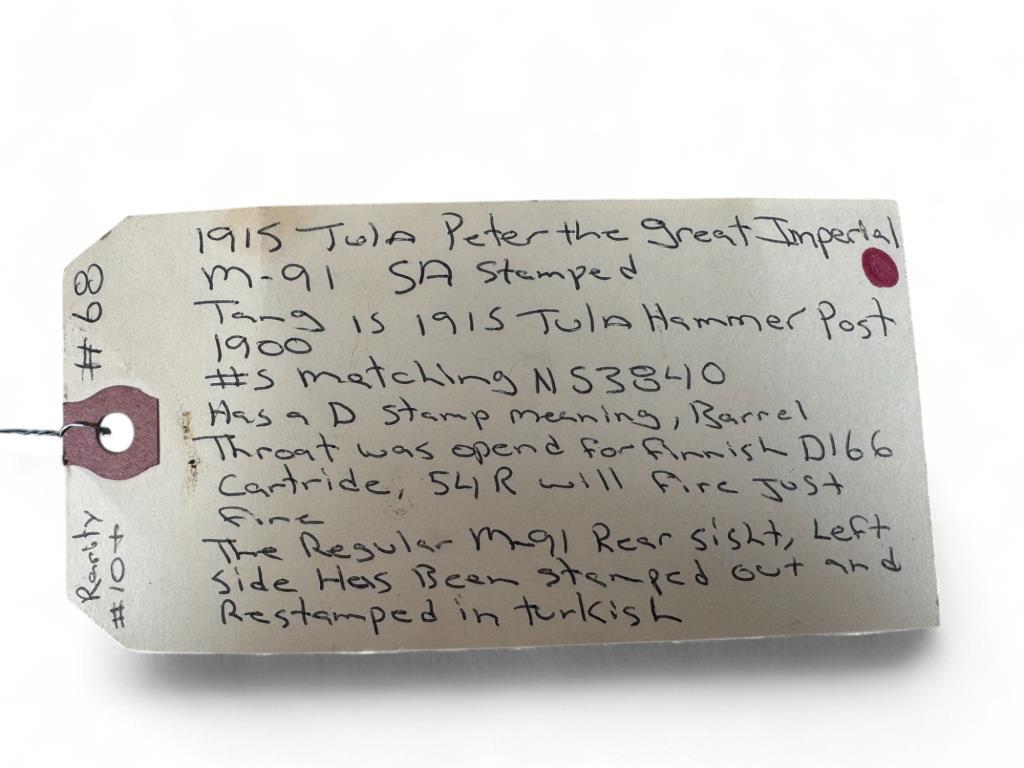 #68
Rarity
#10+
1915 Tula Peter the great Imperial
M-91 SA Stamped
Tang is 1915 Tula Hammer Post
1900
#s matching N 53840
Has a D Stamp meaning, Barrel
Throat was opend for finnish D166
Cartride, 54R will fire just
fine
The Regular M-91 Rear sisht, Left
side Has Been stamped out and
Restamped in turkish